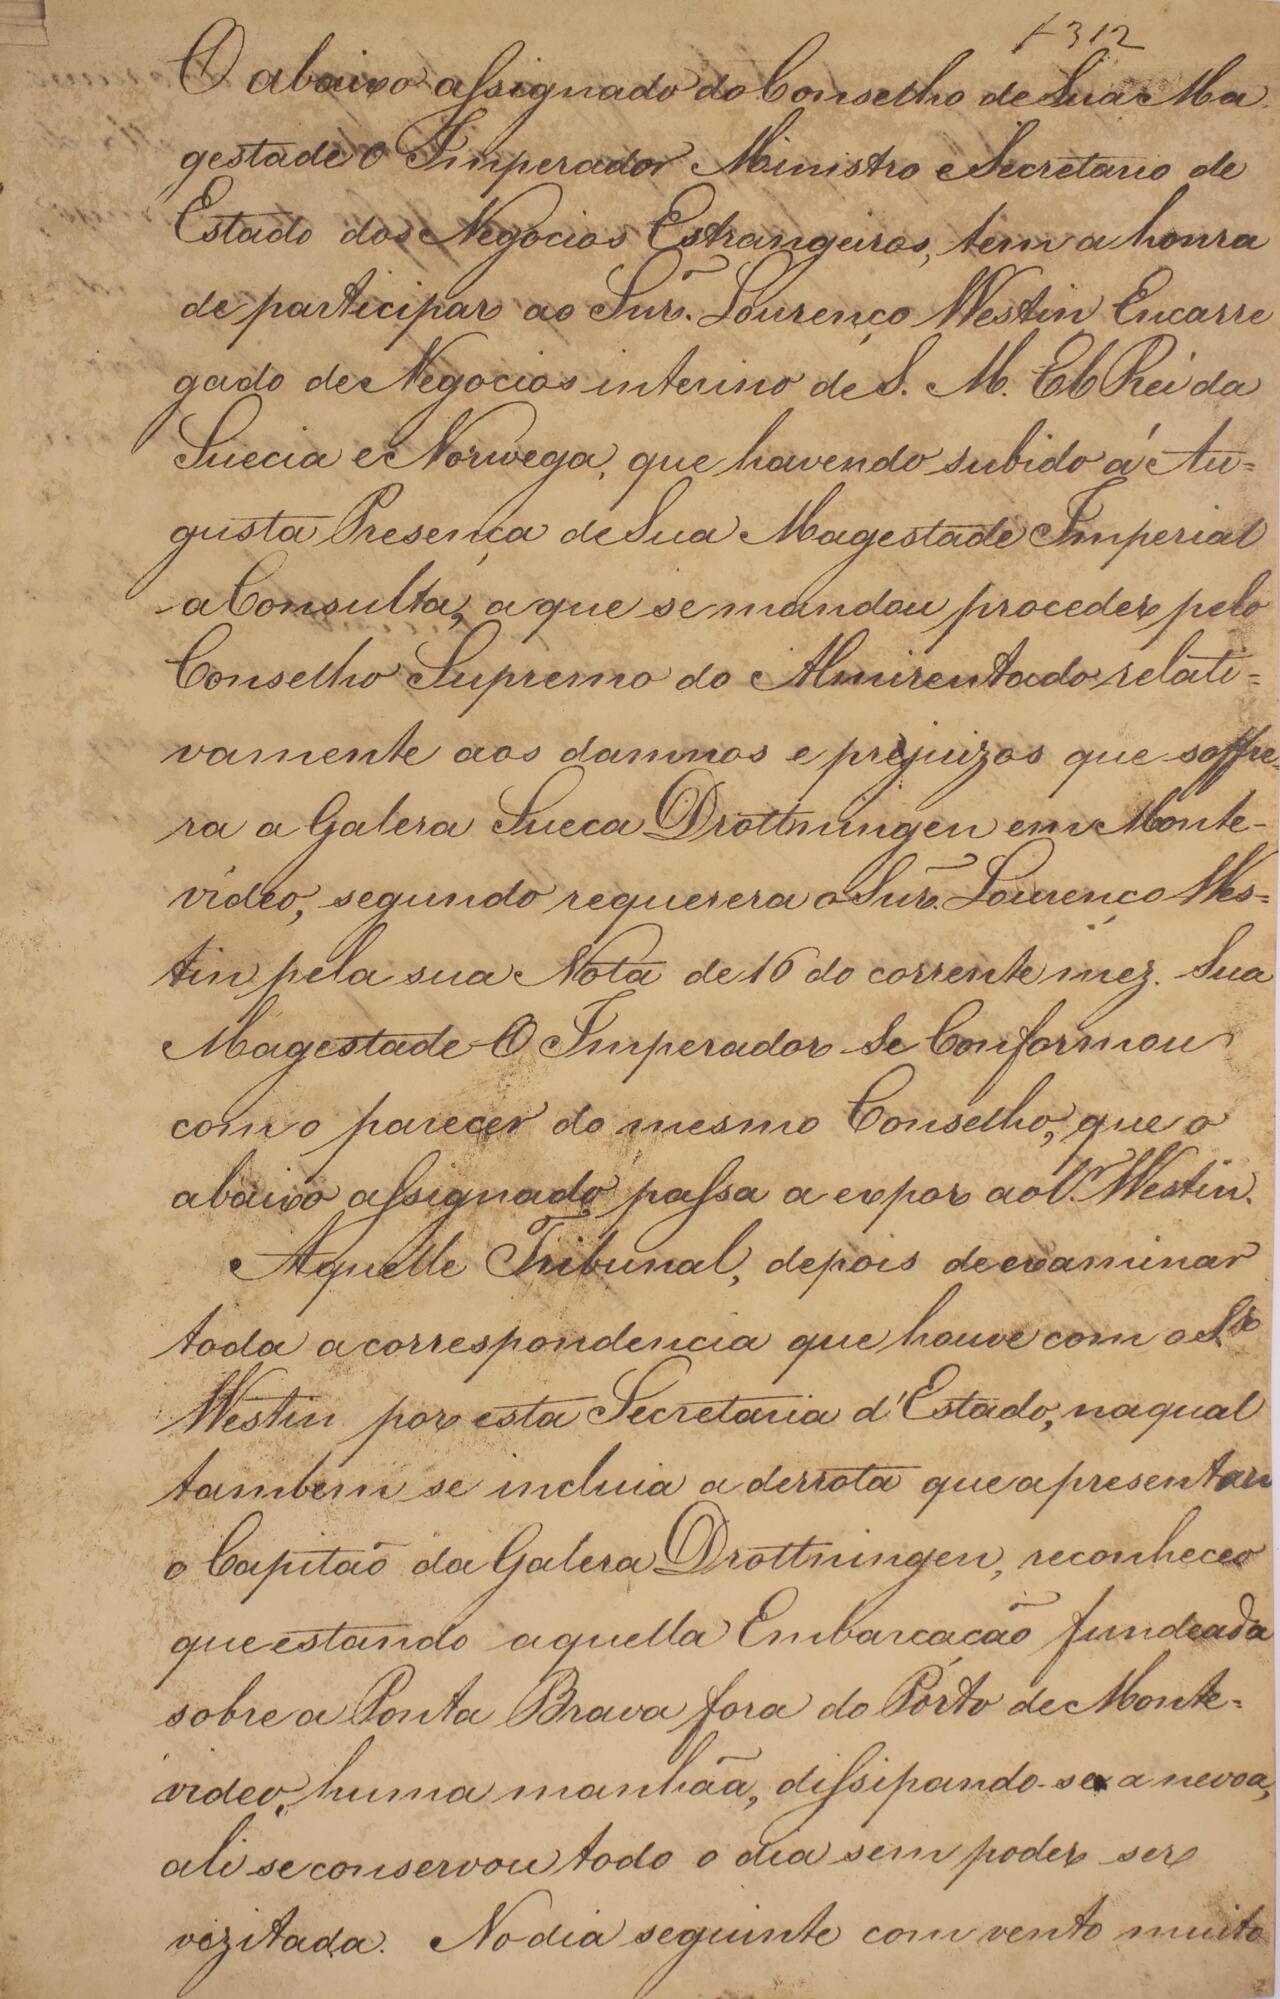 312
O abaixo assignado do Conselho de Sua Ma
gestade O Imperador Ministro e Secretario de
Estado dos Negocios Estrangeiros, tem a honra
de participar ao Snr. Lourenço Westin Encarre
gado de Negocios interino de S. M. El Rei da
Suecia e Norwega, que havendo subido á Au=
gusta Presença de Sua Magestade Imperial
a Consulta, a que se mandou proceder pelo
Conselho Supremo do Almirentado relati=
vamente aos damnos e prejuizos que soffre=
ra a Galera Sueca Drottningen em Monte-
video, segundo requerera o Snr. Lourenço Wes=
tin pela sua Nota de 16 do corrente mez. Sua
Magestade O Imperador Se Conformou
com o parecer do mesmo Conselho, que o
abaixo assignado passa a expor ao Sr. Westin.
Aquelle Tribunal, depois de examinar
toda a correspondencia que houve com o Sr
Westin por esta Secretaria d'Estado, na qual
tambem se incluia a derrota que apresentou
o Capitão da Galera Drottningen, reconheceo
que estando aquella Embarcacão fundeada
sobre a Ponta Brava fora do Pórto de Monte=
video, huma manhãa, dissipando-se a nevoa,
ali se conservou todo o dia sem poder ser
vizitada. No dia seguinte com vento muito